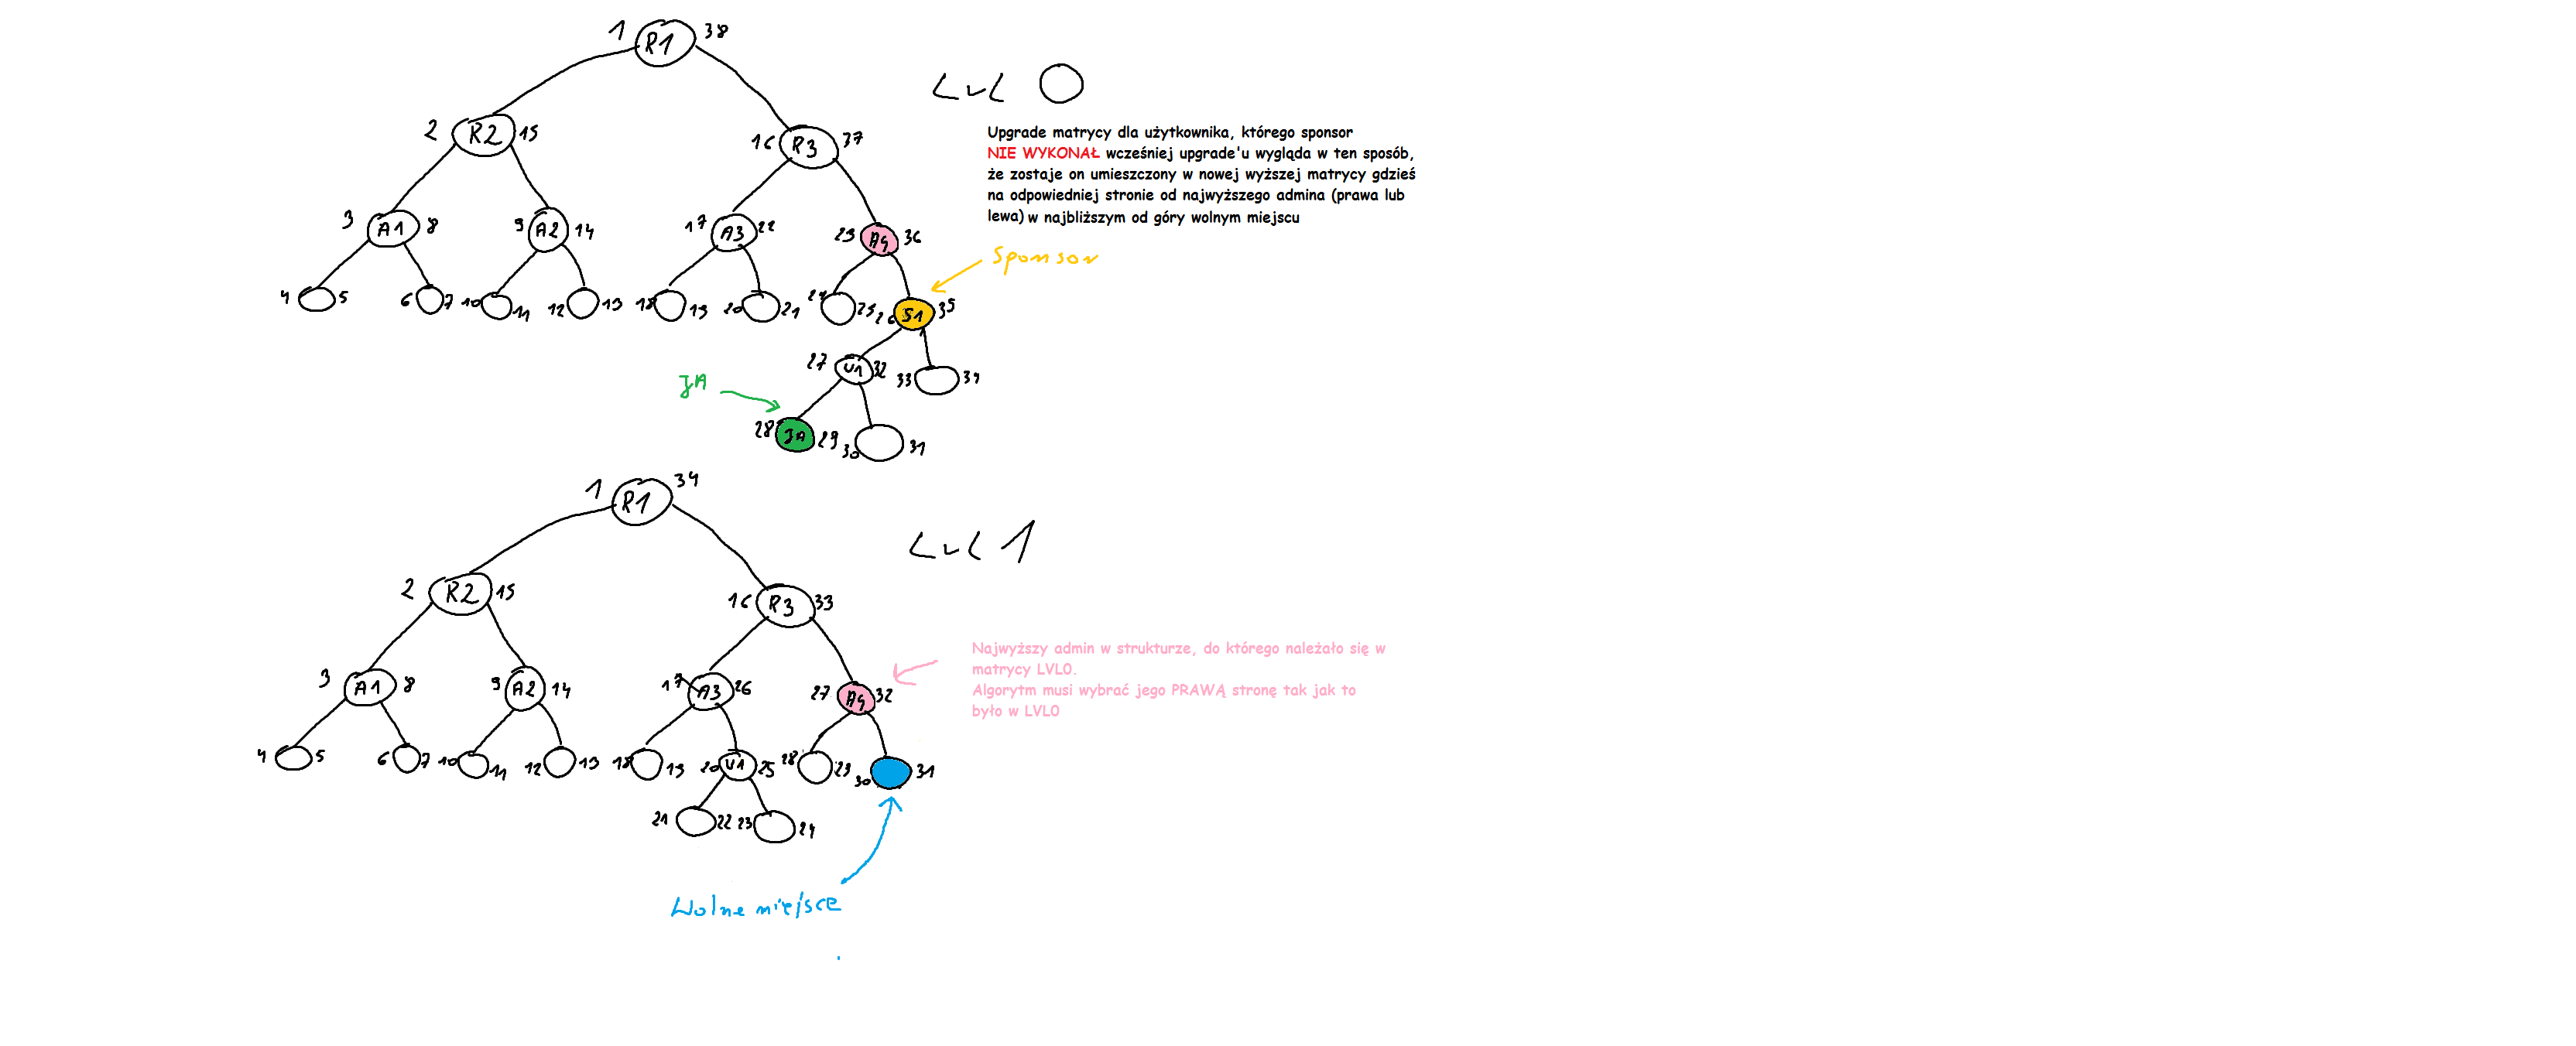 1 R1 38
LvL 0
2 R2 15
16 R3 37
Upgrade matrycy dla użytkownika, którego sponsor
NIE WYKONAŁ wcześniej upgrade'u wygląda w ten sposób,
że zostaje on umieszczony w nowej wyższej matrycy gdzieś
na odpowiedniej stronie od najwyższego admina (prawa lub
lewa) w najbliższym od góry wolnym miejscu
3 A1 8 9 A2 14 17 A3 22 23 A4 36
Sponsor
4 5 6 7 10 11 12 13 18 19 20 21 24 25 26 S1 35
27 U1 32 33 34
JA
28 JA 29 30 31
1 R1 34
LvL 1
2 R2 15 16 R3 33
Najwyższy admin w strukturze, do którego należało się w
matrycy LVL0.
Algorytm musi wybrać jego PRAWĄ stronę tak jak to
było w LVL0
3 A1 8 9 A2 14 17 A3 26 27 A4 32
4 5 6 7 10 11 12 13 18 19 20 U1 25 28 29 30 31
21 22 23 24
Wolne miejsce